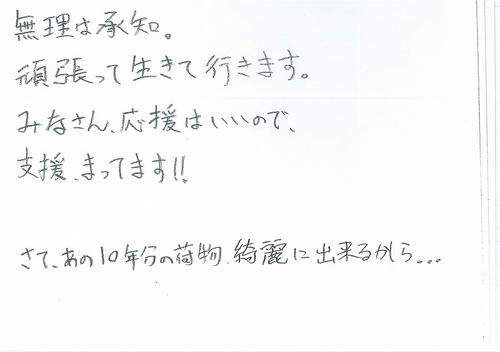 無理は承知。
頑張って生きて行きます。
みなさん、応援はいいので、
支援、まってます!!
さて、あの10年分の荷物、綺麗に出来るかしら...